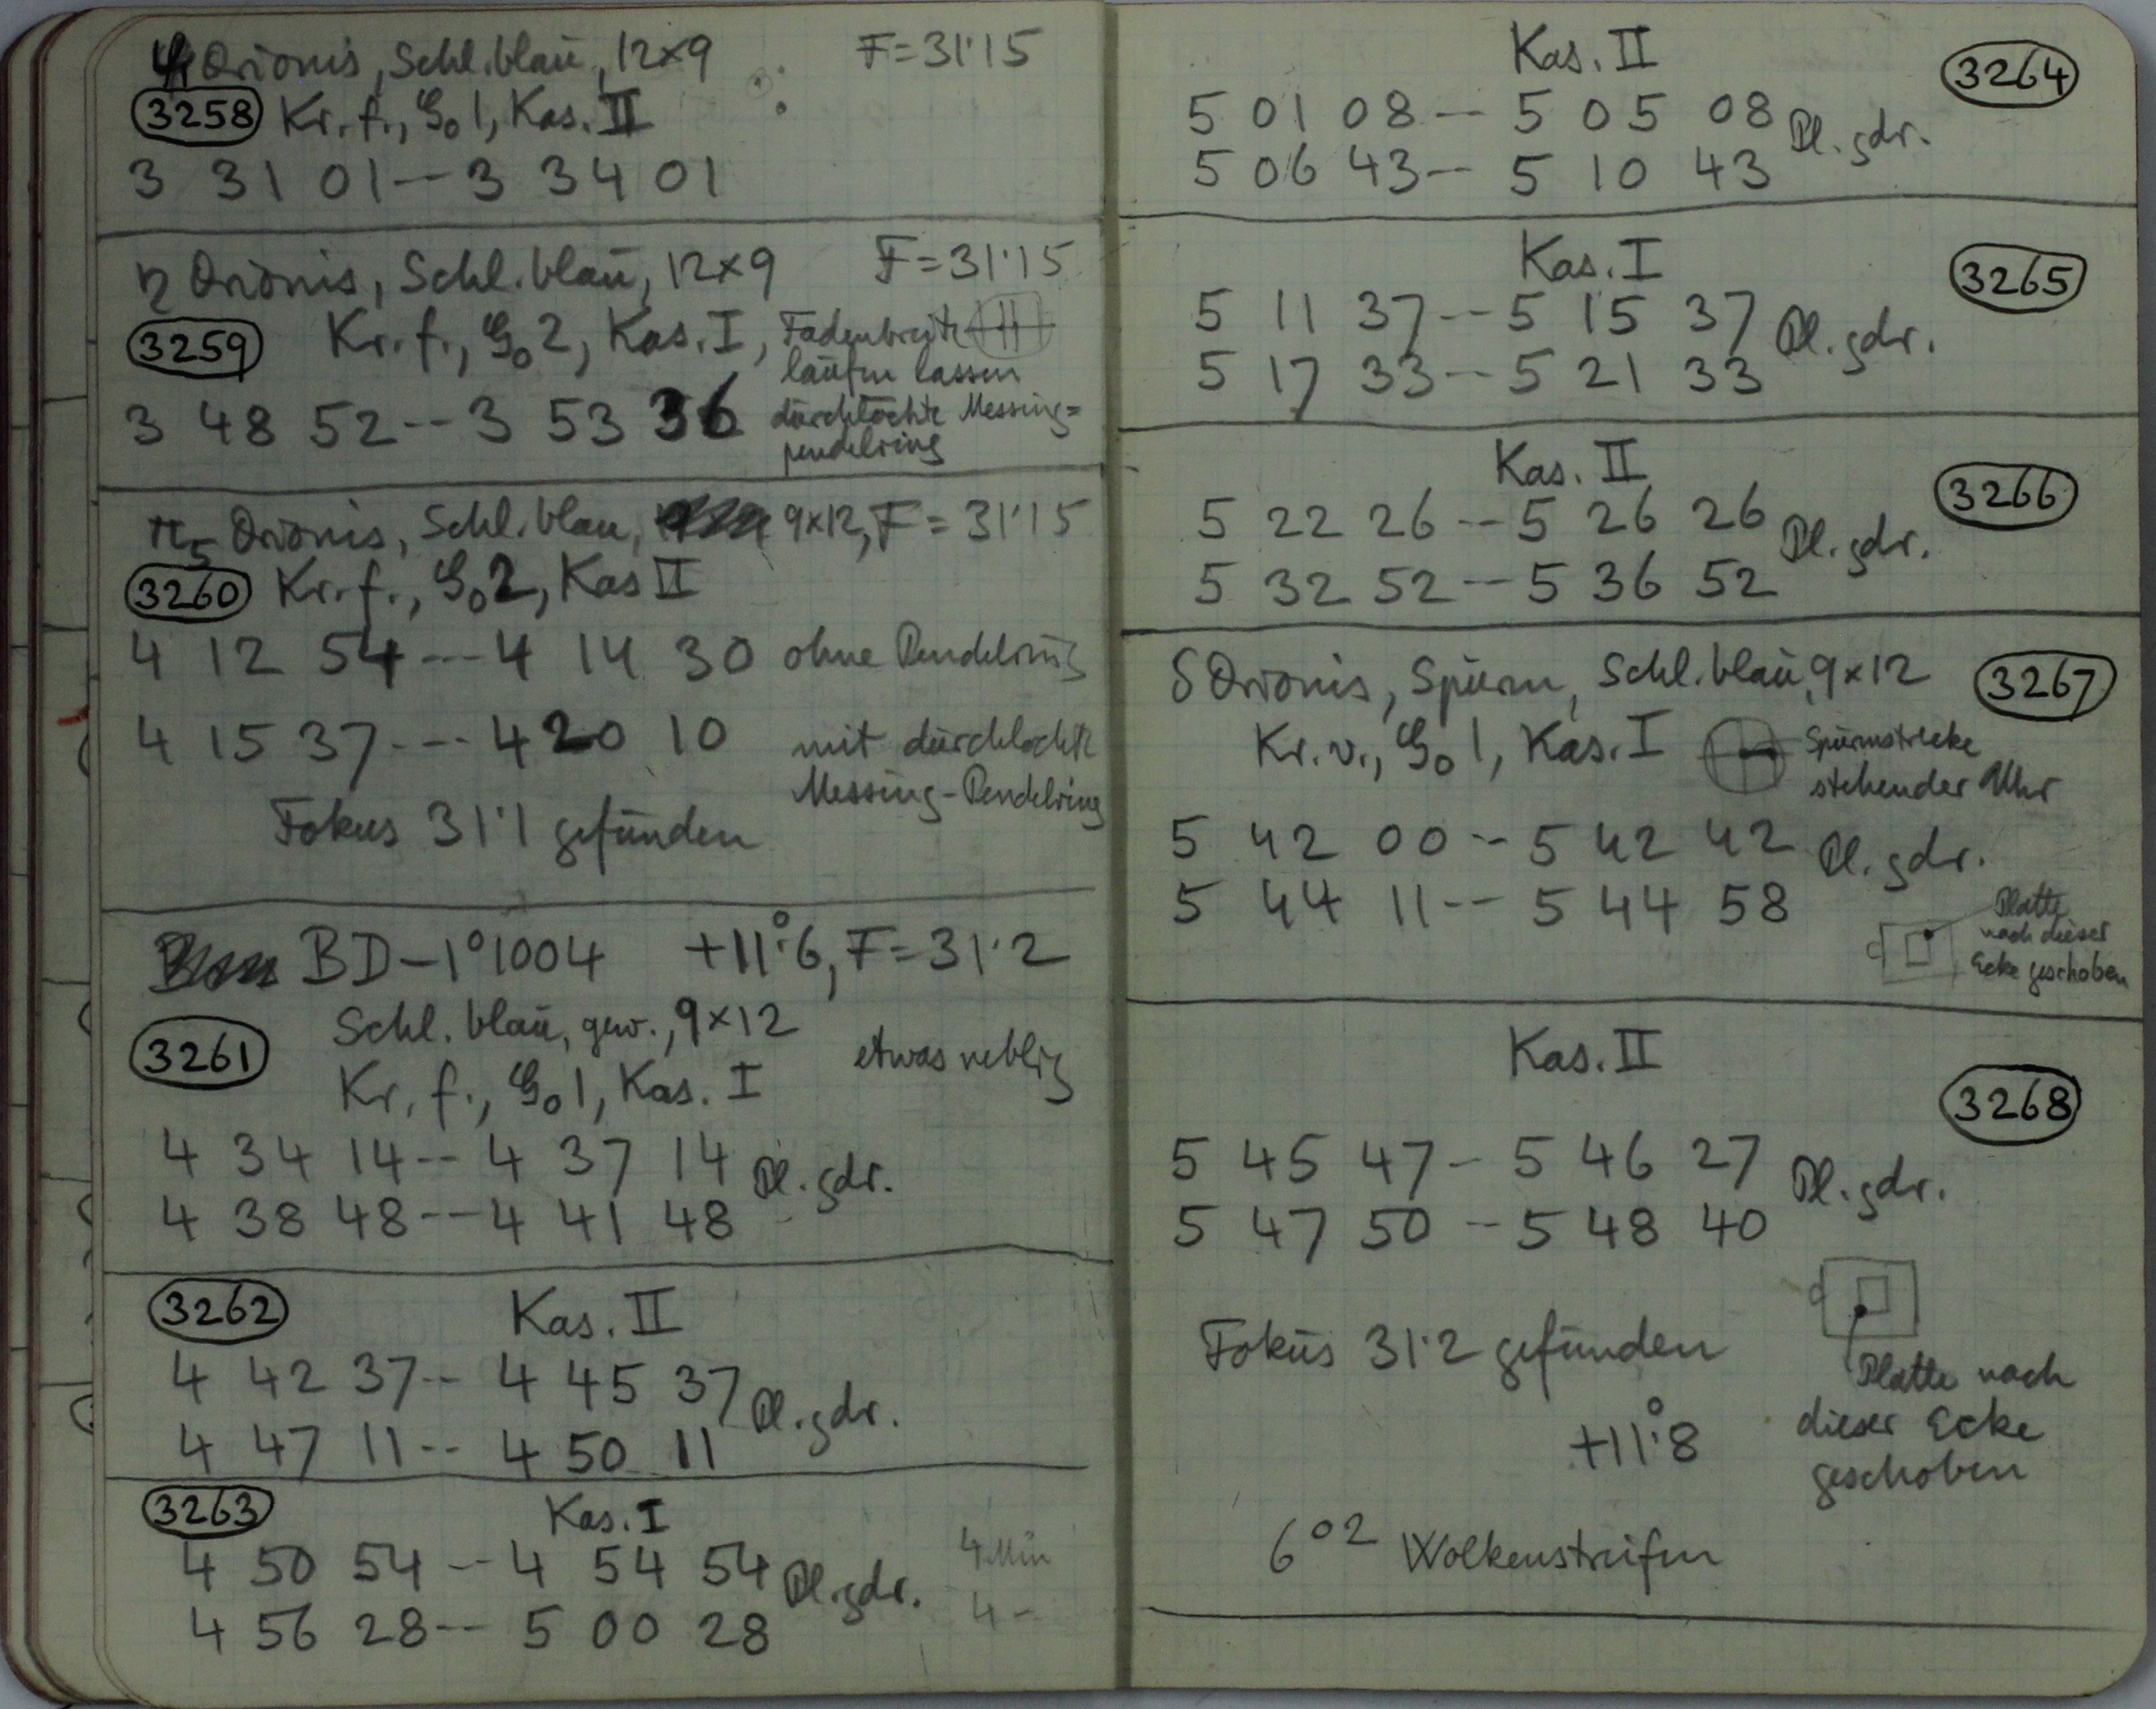 ψ Orionis, Schl. blau, 12×9 F=31·15
3258 Kr. f., G₀ 1, Kas. II
3 31 01 -- 3 34 01
η Orionis, Schl. blau, 12×9 F=31·15
3259 Kr. f., G₀ 2, Kas. I, Fadenbreite
laufen lassen
3 48 52 -- 3 53 36 durchlochte Messing=
pendelring
π₅ Orionis, Schl. blau, 9×12, F=31·15
3260 Kr. f., G₀ 2, Kas II
4 12 54 --- 4 14 30 ohne Pendelring
4 15 37 --- 4 20 10 mit durchlochte
Messing-Pendelring
Fokus 31·1 gefunden
BD-1°1004 +11°6, F=31·2
Schl. blau, gew., 9×12
3261 etwas neblig
Kr. f., G₀ 1, Kas. I
4 34 14 -- 4 37 14 Pl. gdr.
4 38 48 -- 4 41 48
3262 Kas. II
4 42 37 -- 4 45 37 Pl. gdr.
4 47 11 -- 4 50 11
3263 Kas. I
4 50 54 -- 4 54 54 Pl. gdr. 4 Min
4 56 28 -- 5 00 28 4 -
Kas. II 3264
5 01 08 -- 5 05 08 Pl. gdr.
5 06 43 -- 5 10 43
Kas. I 3265
5 11 37 -- 5 15 37 Pl. gdr.
5 17 33 -- 5 21 33
Kas. II 3266
5 22 26 -- 5 26 26 Pl. gdr.
5 32 52 -- 5 36 52
δ Orionis, Spuren, Schl. blau, 9×12 3267
Kr. v., G₀ 1, Kas. I Spurenstrecke
stehender Uhr
5 42 00 -- 5 42 42 Pl. gdr.
5 44 11 -- 5 44 58
Platte
nach dieser
Ecke geschoben
Kas. II
3268
5 45 47 - 5 46 27 Pl. gdr.
5 47 50 -- 5 48 40
Fokus 31·2 gefunden
Platte nach
dieser Ecke
geschoben
+11°8
6 02 Wolkenstreifen